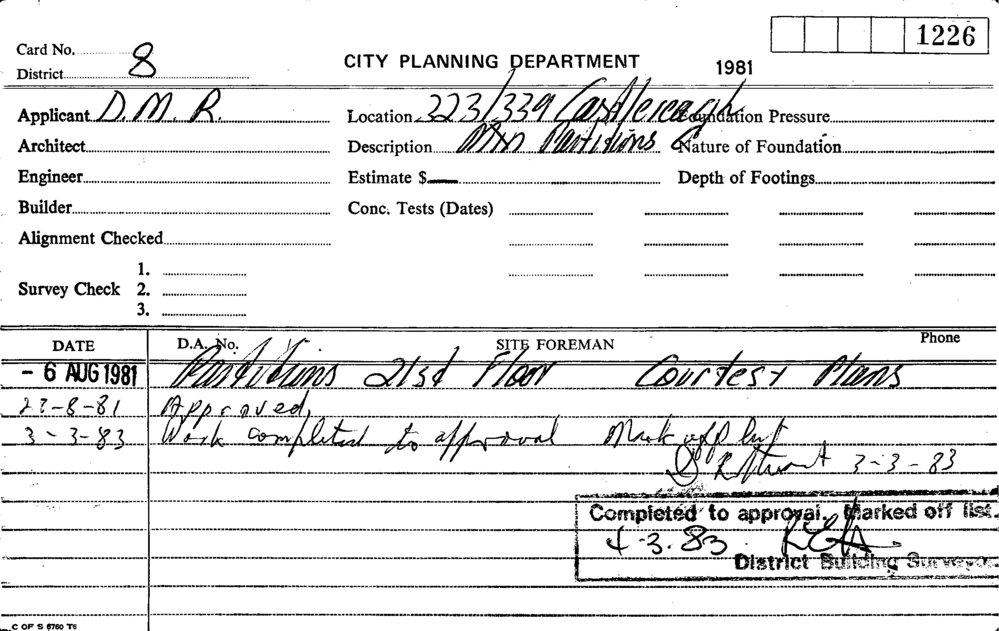 1226
Card No.
District 8
CITY PLANNING DEPARTMENT 1981
Applicant D. M. R. Location 223/339 Castlereagh Foundation Pressure
Architect Description Partitions Nature of Foundation
Engineer Estimate $— Depth of Footings
Builder Conc. Tests (Dates)
Alignment Checked
1.
Survey Check 2.
3.
DATE D.A. No. SITE FOREMAN Phone
- 6 AUG 1981 Partitions 21st Floor Courtesy Plans
-8-81 Approved.
3-3-83 Work completed to approval Mark off list
3-3-83
Completed to approval. Marked off list.
4-3.83
District Building Surveyor
C OF S 6760 T6